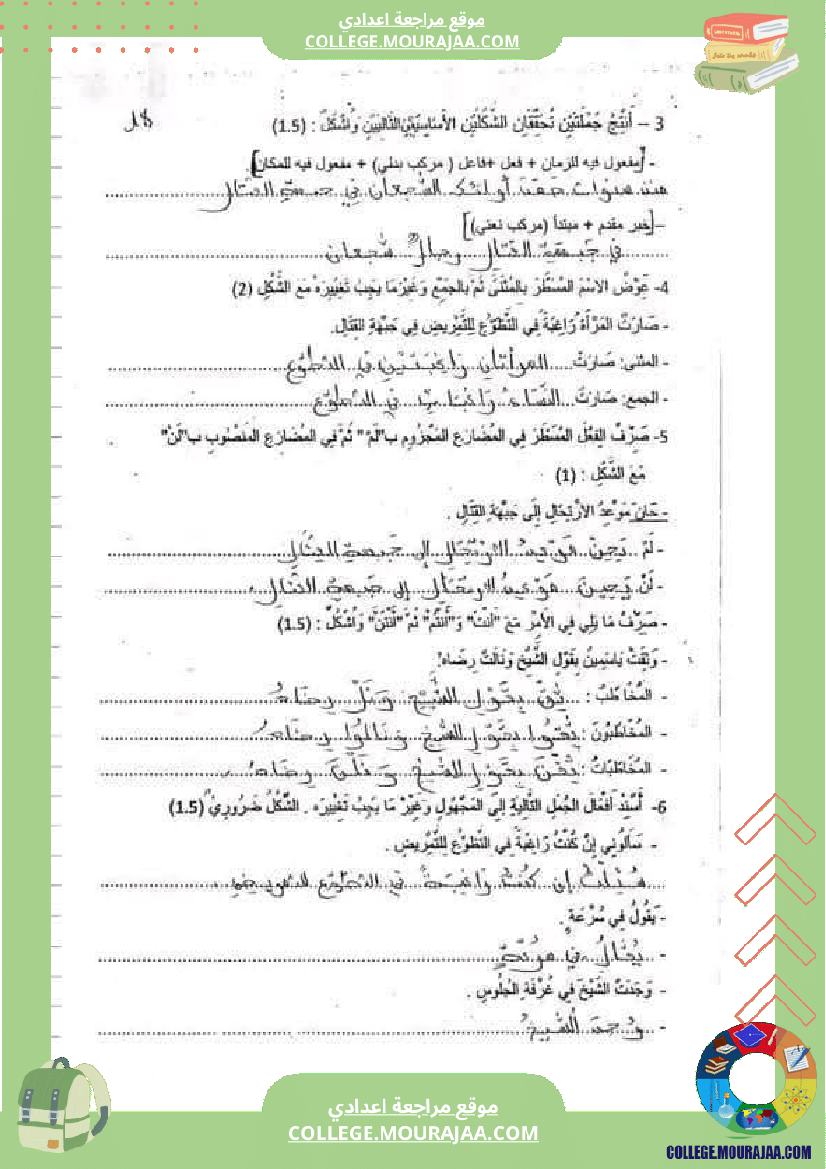 موقع مراجعة اعدادي
COLLEGE.MOURAJAA.COM
3 – أَنْتِجْ جُمْلَتَيْنِ تُحَقِّقَانِ الشَّكْلَيْنِ الأَسَاسِيَّيْنِ التَّالِيَيْنِ وَاُشْكُلْ : (1.5)
- [مفعول فيه للزمان + فعل +فاعل ( مركب بدلي) + مفعول فيه للمكان].
منذ سنوات صمد أولئك الشجعان في جبهة القتال
-[خبر مقدم + مبتدأ (مركب نعتي)]
في جبهة القتال رجال شجعان
4- عَوِّضْ الاسْمَ المُسَطَّرَ بِالمُثَنَّى ثُمَّ بِالجَمْعِ وَغَيِّرْ مَا يَجِبُ تَغْيِيرَهُ مَعَ الشَّكْلِ (2)
- صَارَتْ المَرْأَةُ رَاغِبَةً فِي التَّطَوُّعِ لِلتَّمْرِيضِ فِي جَبْهَةِ القِتَالِ.
- المثنى: صَارَتْ المرأتان راغبتين في التطوّع
- الجمع: صَارَتْ النّساء راغبات في التطوّع
5- صَرِّفْ الفِعْلَ المُسَطَّرَ فِي المُضَارِعِ المَجْزُومِ بـ"لَمْ" ثُمَّ فِي المُضَارِعِ المَنْصُوبِ بـ"لَنْ"
مَعَ الشَّكْلِ : (1)
- حَانَ مَوْعِدُ الارْتِحَالِ إِلَى جَبْهَةِ القِتَالِ .
- لَمْ يَحِنْ موعد الارتحال إلى جبهة القتال
- لَنْ يَحِينَ موعد الارتحال إلى جبهة القتال
- صَرِّفْ مَا يَلِي فِي الأَمْرِ مَعَ "أَنْتَ" وَ"أَنْتُمْ" ثُمَّ "أَنْتُنَّ" وَاُشْكُلْ : (1.5)
- وَثِقَتْ يَاسَمِينُ بِقَوْلِ الشَّيْخِ وَنَالَتْ رِضَاهُ!
- المُخَاطَبُ : ثِقْ بِقَوْلِ الشَّيْخِ وَنَلْ رِضَاهُ
- المُخَاطَبُونَ : ثِقُوا بِقَوْلِ الشَّيْخِ وَنَالُوا رِضَاهُ
- المُخَاطَبَاتُ : ثِقْنَ بِقَوْلِ الشَّيْخِ وَنَلْنَ رِضَاهُ
6- أَسْنِدْ أَفْعَالَ الجُمَلِ التَّالِيَةِ إِلَى المَجْهُولِ وَغَيِّرْ مَا يَجِبُ تَغْيِيرَه . الشَّكْلُ ضَرُورِيٌّ (1.5)
- سَأَلُونِي إِنْ كُنْتُ رَاغِبَةً فِي التَّطَوُّعِ لِلتَّمْرِيضِ .
سُئِلْتُ إن كنتُ راغبةً في التطوّع للتمريض
- يَقُولُ فِي سُرْعَةٍ .
- يُقَالُ في سرعة
- وَجَدْتُ الشَّيْخَ فِي غُرْفَةِ الجُلُوسِ .
- وُجِدَ الشيخُ
موقع مراجعة اعدادي
COLLEGE.MOURAJAA.COM
COLLEGE.MOURAJAA.COM